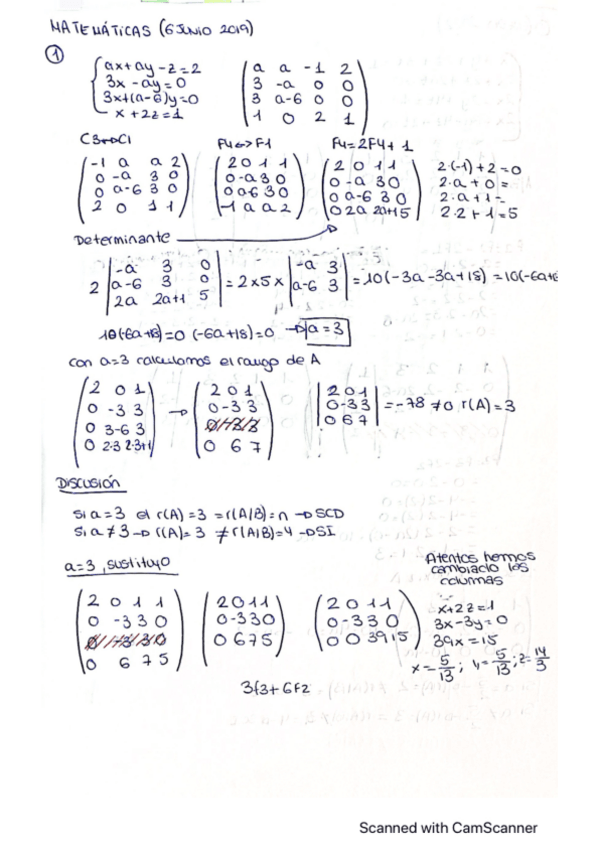 MATEMÁTICAS (6 JUNIO 2019)
①
ax+ay-z=2
3x-ay=0
3x+(a-6)y=0
x+2z=1
a a -1 2
3 -a 0 0
3 a-6 0 0
1 0 2 1
C3↔C1
-1 a a 2
0 -a 3 0
0 a-6 3 0
2 0 1 1
F4<->F1
2 0 1 1
0 -a 3 0
0 a-6 3 0
-1 a a 2
F4=2F4+1
2 0 1 1
0 -a 3 0
0 a-6 3 0
0 2a 2a+1 5
2·(-1)+2=0
2·a+0=
2·a+1=
2·2+1=5
Determinante
2 |-a 3 0
a-6 3 0
2a 2a+1 5| = 2x5x |-a 3
a-6 3| =10(-3a-3a+18)=10(-6a+
10(-6a+18)=0 (-6a+18)=0 → a=3
con a=3 calculamos el rango de A
2 0 1
0 -3 3
0 3-6 3
0 2·3 2·3+1
→
2 0 1
0 -3 3
0 -3 3
0 6 7
|2 0 1
0 -3 3
0 6 7| =-78≠0 r(A)=3
DISCUSIÓN
Si a=3 el r(A)=3=r(A|B)=n → SCD
Si a≠3 → r(A)=3 ≠r(A|B)=4 → SI
a=3, sustituyo
Atentos hemos
cambiado las
columnas
2 0 1 1
0 -3 3 0
0 -3 3 0
0 6 7 5
2 0 1 1
0 -3 3 0
0 6 7 5
2 0 1 1
0 -3 3 0
0 0 39 15
3f3+6F2
x+2z=1
3x-3y=0
39x=15
x=5/13; y=5/13; z=14/3
Scanned with CamScanner